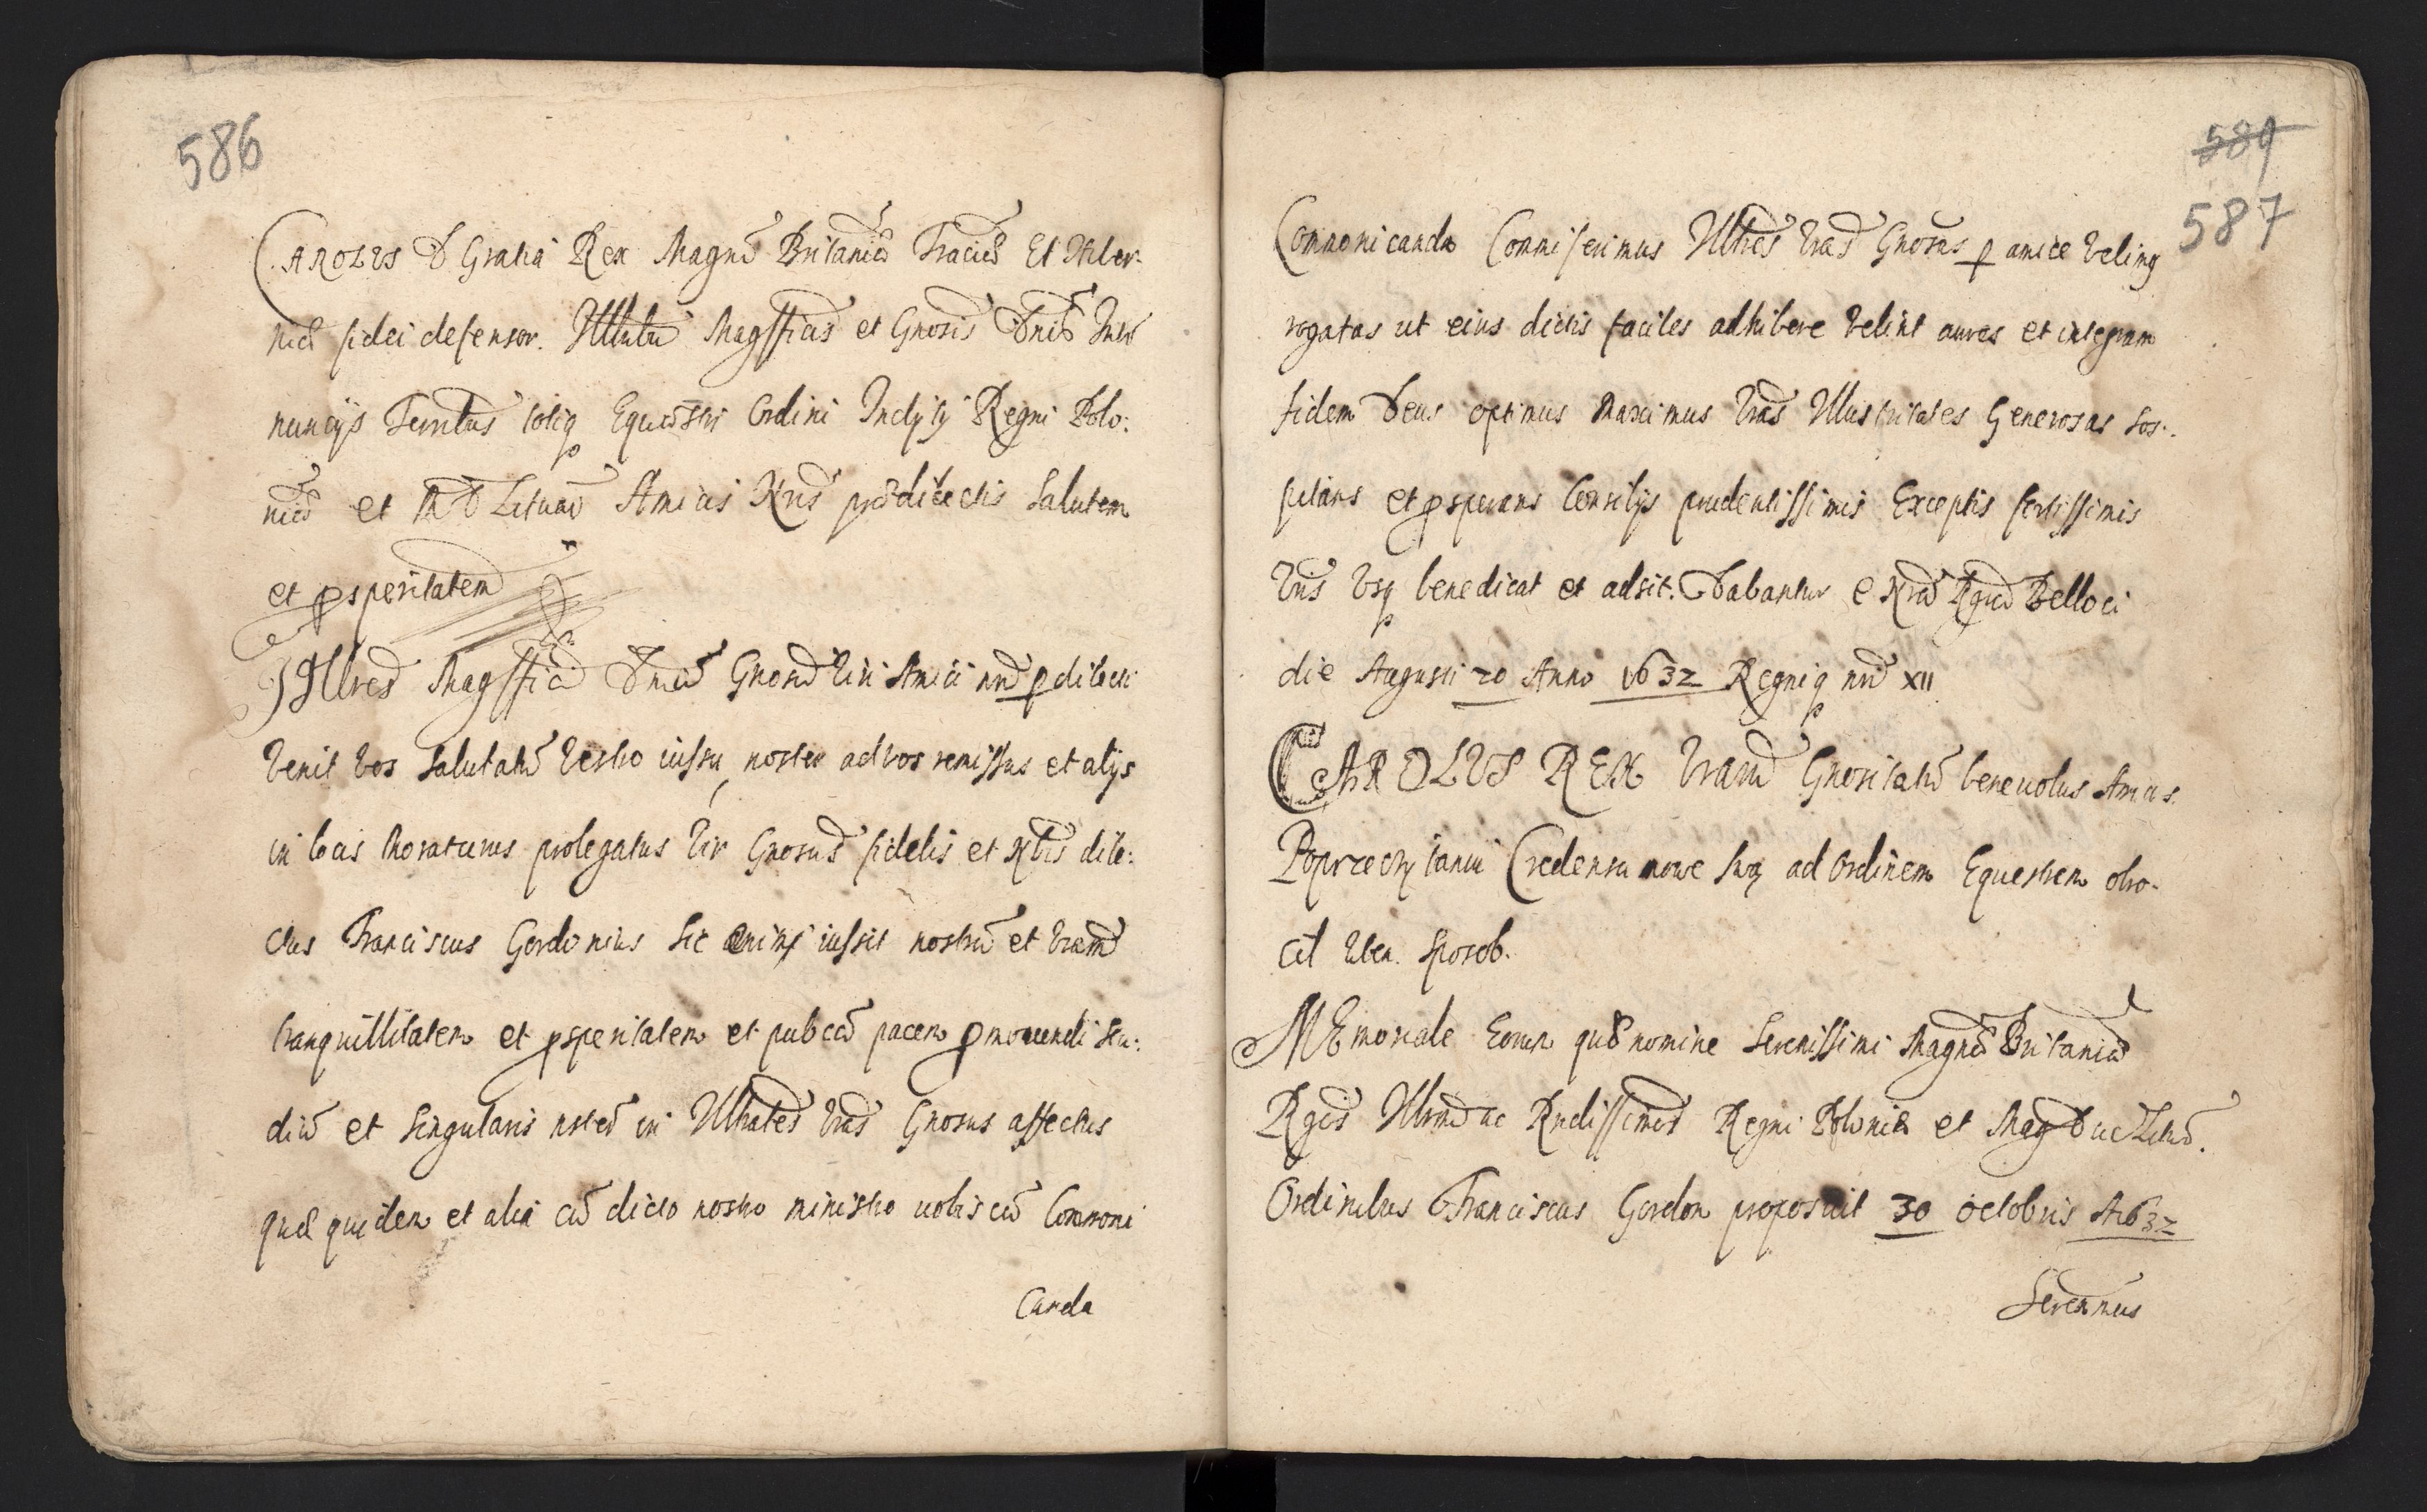 586
CAROLVS D Gratia Rex Magnæ Britaniæ Fraciæ Et Hiber-
niæ fidei defensor. Illubus Magfficis et Gnosis Dnis
nuncijs Terrribus totiq Equestri Ordini Inclyty Regni Polo:
niæ et M D Lituaæ Amicis Nris prædilectis Salutem
et psperitatem
Illres Magffici Dni Gnosi Viri Amici nri pdilecti
Venit vos Salutatu vestro iussu, noster ad vos remissus et alys
in locis moraturus prolegatus Vir Gnosus fidelis et Nbis dile:
ctus Franciscus Gordonius Sic iussit nostru et vram
tranquillitatem et psperitatem et pubcæ pacem pmouendi stu:
diu et singularis in Illtrates Vras Gnosas affectus
quæ quidem et alia cu dicto nostro ministro uobiscu Commoni
Canda
589
587
Commonicanda Commiserimus Illtres Vras Gnosas p amice
rogatas ut eius dictis faciles adhibere velint aures et integram
fidem Deus optimus maximus Vras Illustritates Generosas Sos-
pitans et psperans Consilys prudentissimis Exceptis fortissimis
Vris Vsq benedicat et adsit. Dabantur e Nra Rgia Belloci
die Augusti 20 Anno 1632 Regniq nri XII
CAROLVS REX Vraru Gnositatu beneuolus Amicus.
Poprzeczytaniu Credensu nowe swą ad Ordinem Equestrem obro-
cil sposob.
MEmoriale Eorum quæ nomine Serenissimi Magnæ Britaniæ
Rgis Illrimis ac Rndissimis Regni Poloniæ et Mag Duc Litu.
Ordinibus Franciscus Gordon proposuit 30 octobris A1632
Serenmus